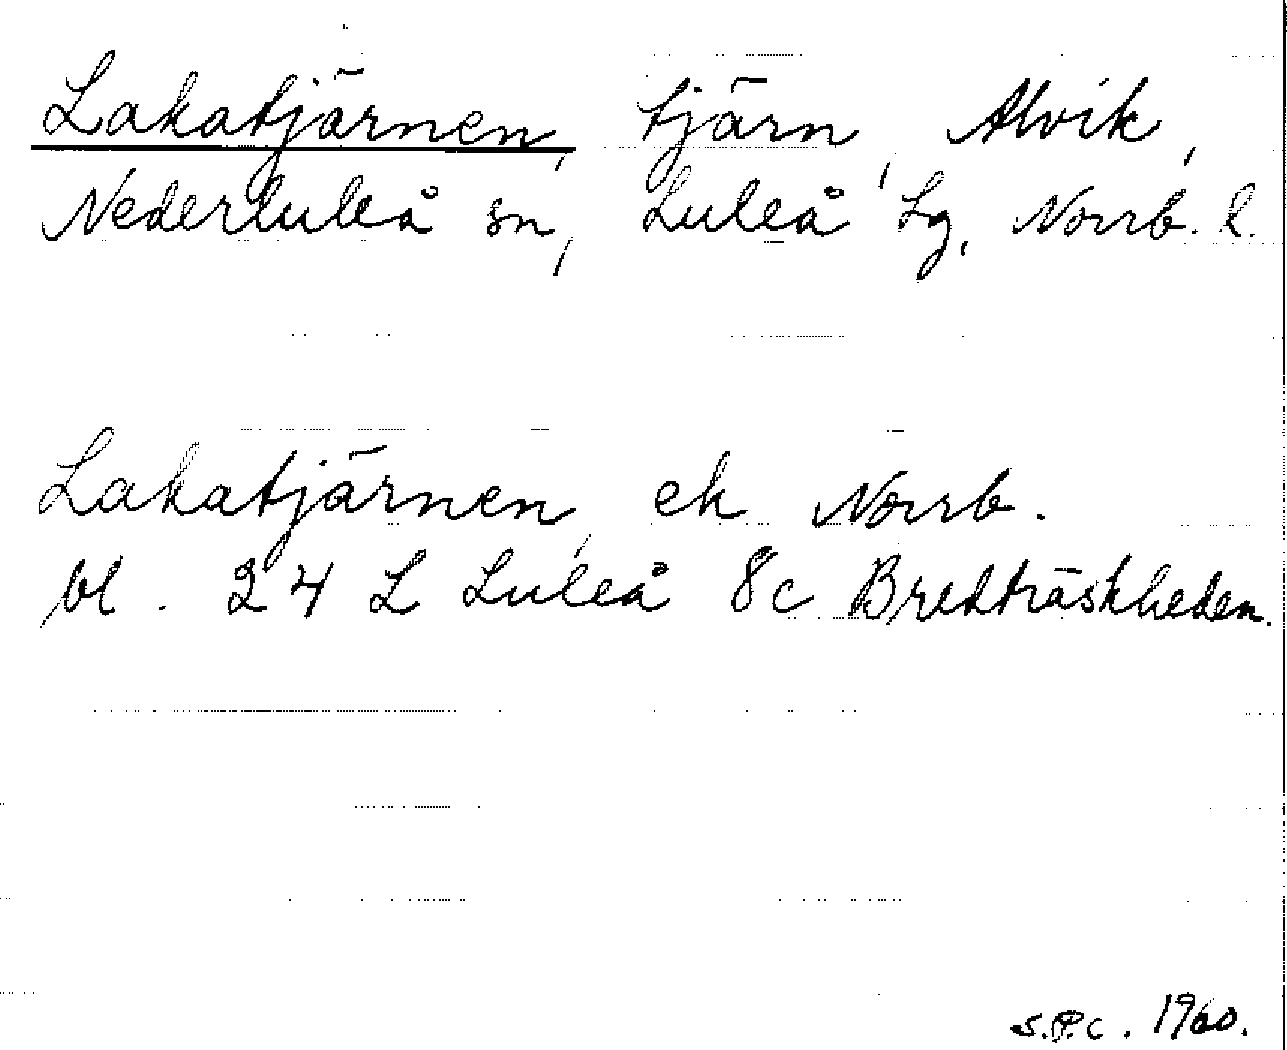 Lakatjärnen, tjärn, Alvik,
Nederluleå sn, Luleå lg, Norrb. l.
Lakatjärnen, ek Norrb.
bl. 24 L Luleå 8c Bredträskheden.
S.P.C. 1960.